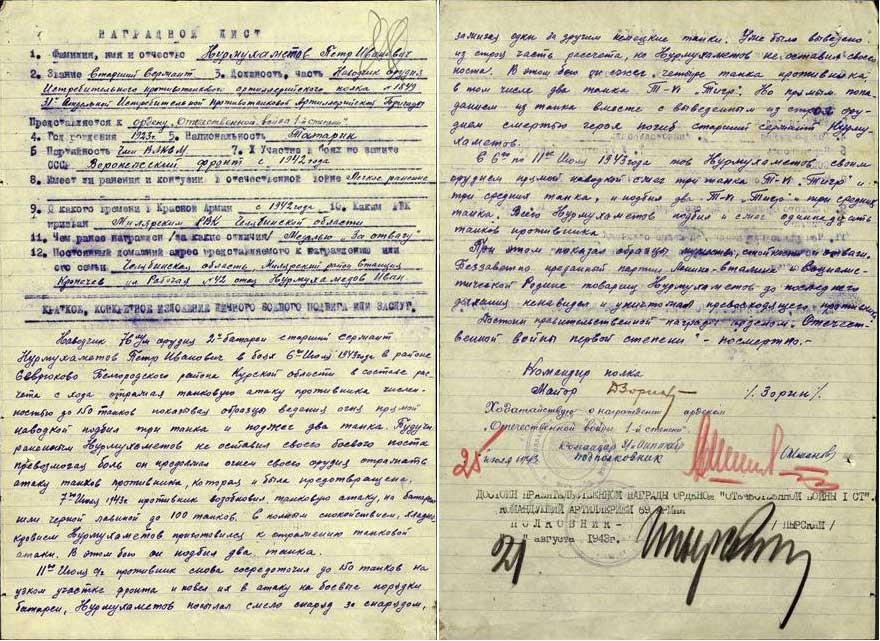 НАГРАДНОЙ ЛИСТ
1. Фамилия, имя и отчество Нурмухаметов Петр Иванович
2. Звание Старший Сержант 3. Должность, часть Наводчик орудия
Истребительного противотанкового артиллерийского полка № 1849
31ой Отдельной Истребительной Противотанковой Артиллерийской Бригады
Представляется к ордену "Отечественной война 1-й степени"
4. Год рождения 1923г. 5. Национальность Татарин
6. Партийность Член ВЛКСМ 7. Участие в боях по защите
СССР Воронежский фронт с 1942 года
8. Имеет ли ранения и контузии в отечественной войне Легкое ранение
9. С какого времени в Красной Армии с 1942 года 10. Каким РВК
призван РВК Челябинской области
11. Чем ранее награжден /за какие отличия/ Медалью "За отвагу"
12. Постоянный домашний адрес представляемого к награждению или
его семьи Челябинская область, район станция
ул Рабочая № 42 отец Нурмухамедов Иван
КРАТКОЕ, КОНКРЕТНОЕ ИЗЛОЖЕНИЕ ЛИЧНОГО БОЕВОГО ПОДВИГА ИЛИ ЗАСЛУГ.
Наводчик 76мм орудия 2ой батареи старший сержант
Нурмухаметов Петр Иванович в боях 6го Июля 1943 года в районе
Белгородского района Курской области в составе рас-
чета с хода отражая танковую атаку противника числен-
ностью до 150 танков показывая образцы ведения огня прямой
наводкой подбил три танка и поджег два танка. Будучи
раненным Нурмухаметов не оставил своего боевого поста
превозмогая боль он продолжал огнем своего орудия отражать
атаку танков противника, которая и была предотвращена.
7го Июля 1943г противник возобновил танковую атаку, на батарею
шли черной лавиной до 100 танков. В полном спокойствии, хладно-
кровием Нурмухаметов приготовился к отражению танковой
атаки. В этом бою он подбил два танка.
11го Июля с/г противник снова сосредоточил до 150 танков на
узком участке фронта и повел их в атаку на боевые порядки
батареи, Нурмухаметов посылал смело снаряд за снарядом,
зажигая один за другим немецкие танки. Уже было выведено
из строя часть рассчета, но Нурмухаметов не оставил своего
поста. В этом бою он сжег четыре танка противника,
в том числе два танка Т-VI "Тигр". Но прямым попа-
данием из танка вместе с выведенным из строя ору-
дием смертью героя погиб старший сержант Нурму-
хаметов.
С 6го по 11ое Июля 1943 года тов Нурмухаметов своим
орудием прямой наводкой сжег три танка Т-VI "Тигр" и
три средних танка, и подбил два Т-VI "Тигр" и три средних
танка. Всего Нурмухаметов подбил и сжег одиннадцать
танков противника.
При этом показал образцы мужества, стойкости и отваги.
Беззаветно преданной партии Ленина-Сталина и Социалис-
тической Родине товарищ Нурмухаметов до последнего
дыхания ненавидел и уничтожал превосходящего противника
Достоин правительственной награды орденом "Отечест-
венной войны первой степени" - посмертно.-
Командир полка
Майор /Зорин/.
Ходатайствую о награждении орденом
"Отечественной войны 1-й степени".
Командир
подполковник
25 июля 1943
ДОСТОИН ПРАВИТЕЛЬСТВЕННОЙ НАГРАДЫ ОРДЕНОМ "ОТЕЧЕСТВЕННОЙ ВОЙНЫ I СТ"
КОМАНДУЮЩИЙ АРТИЛЛЕРИЕЙ 69 АРМИИ
ПОЛКОВНИК- /ПЫРСКИЙ/
"21" августа 1943г.